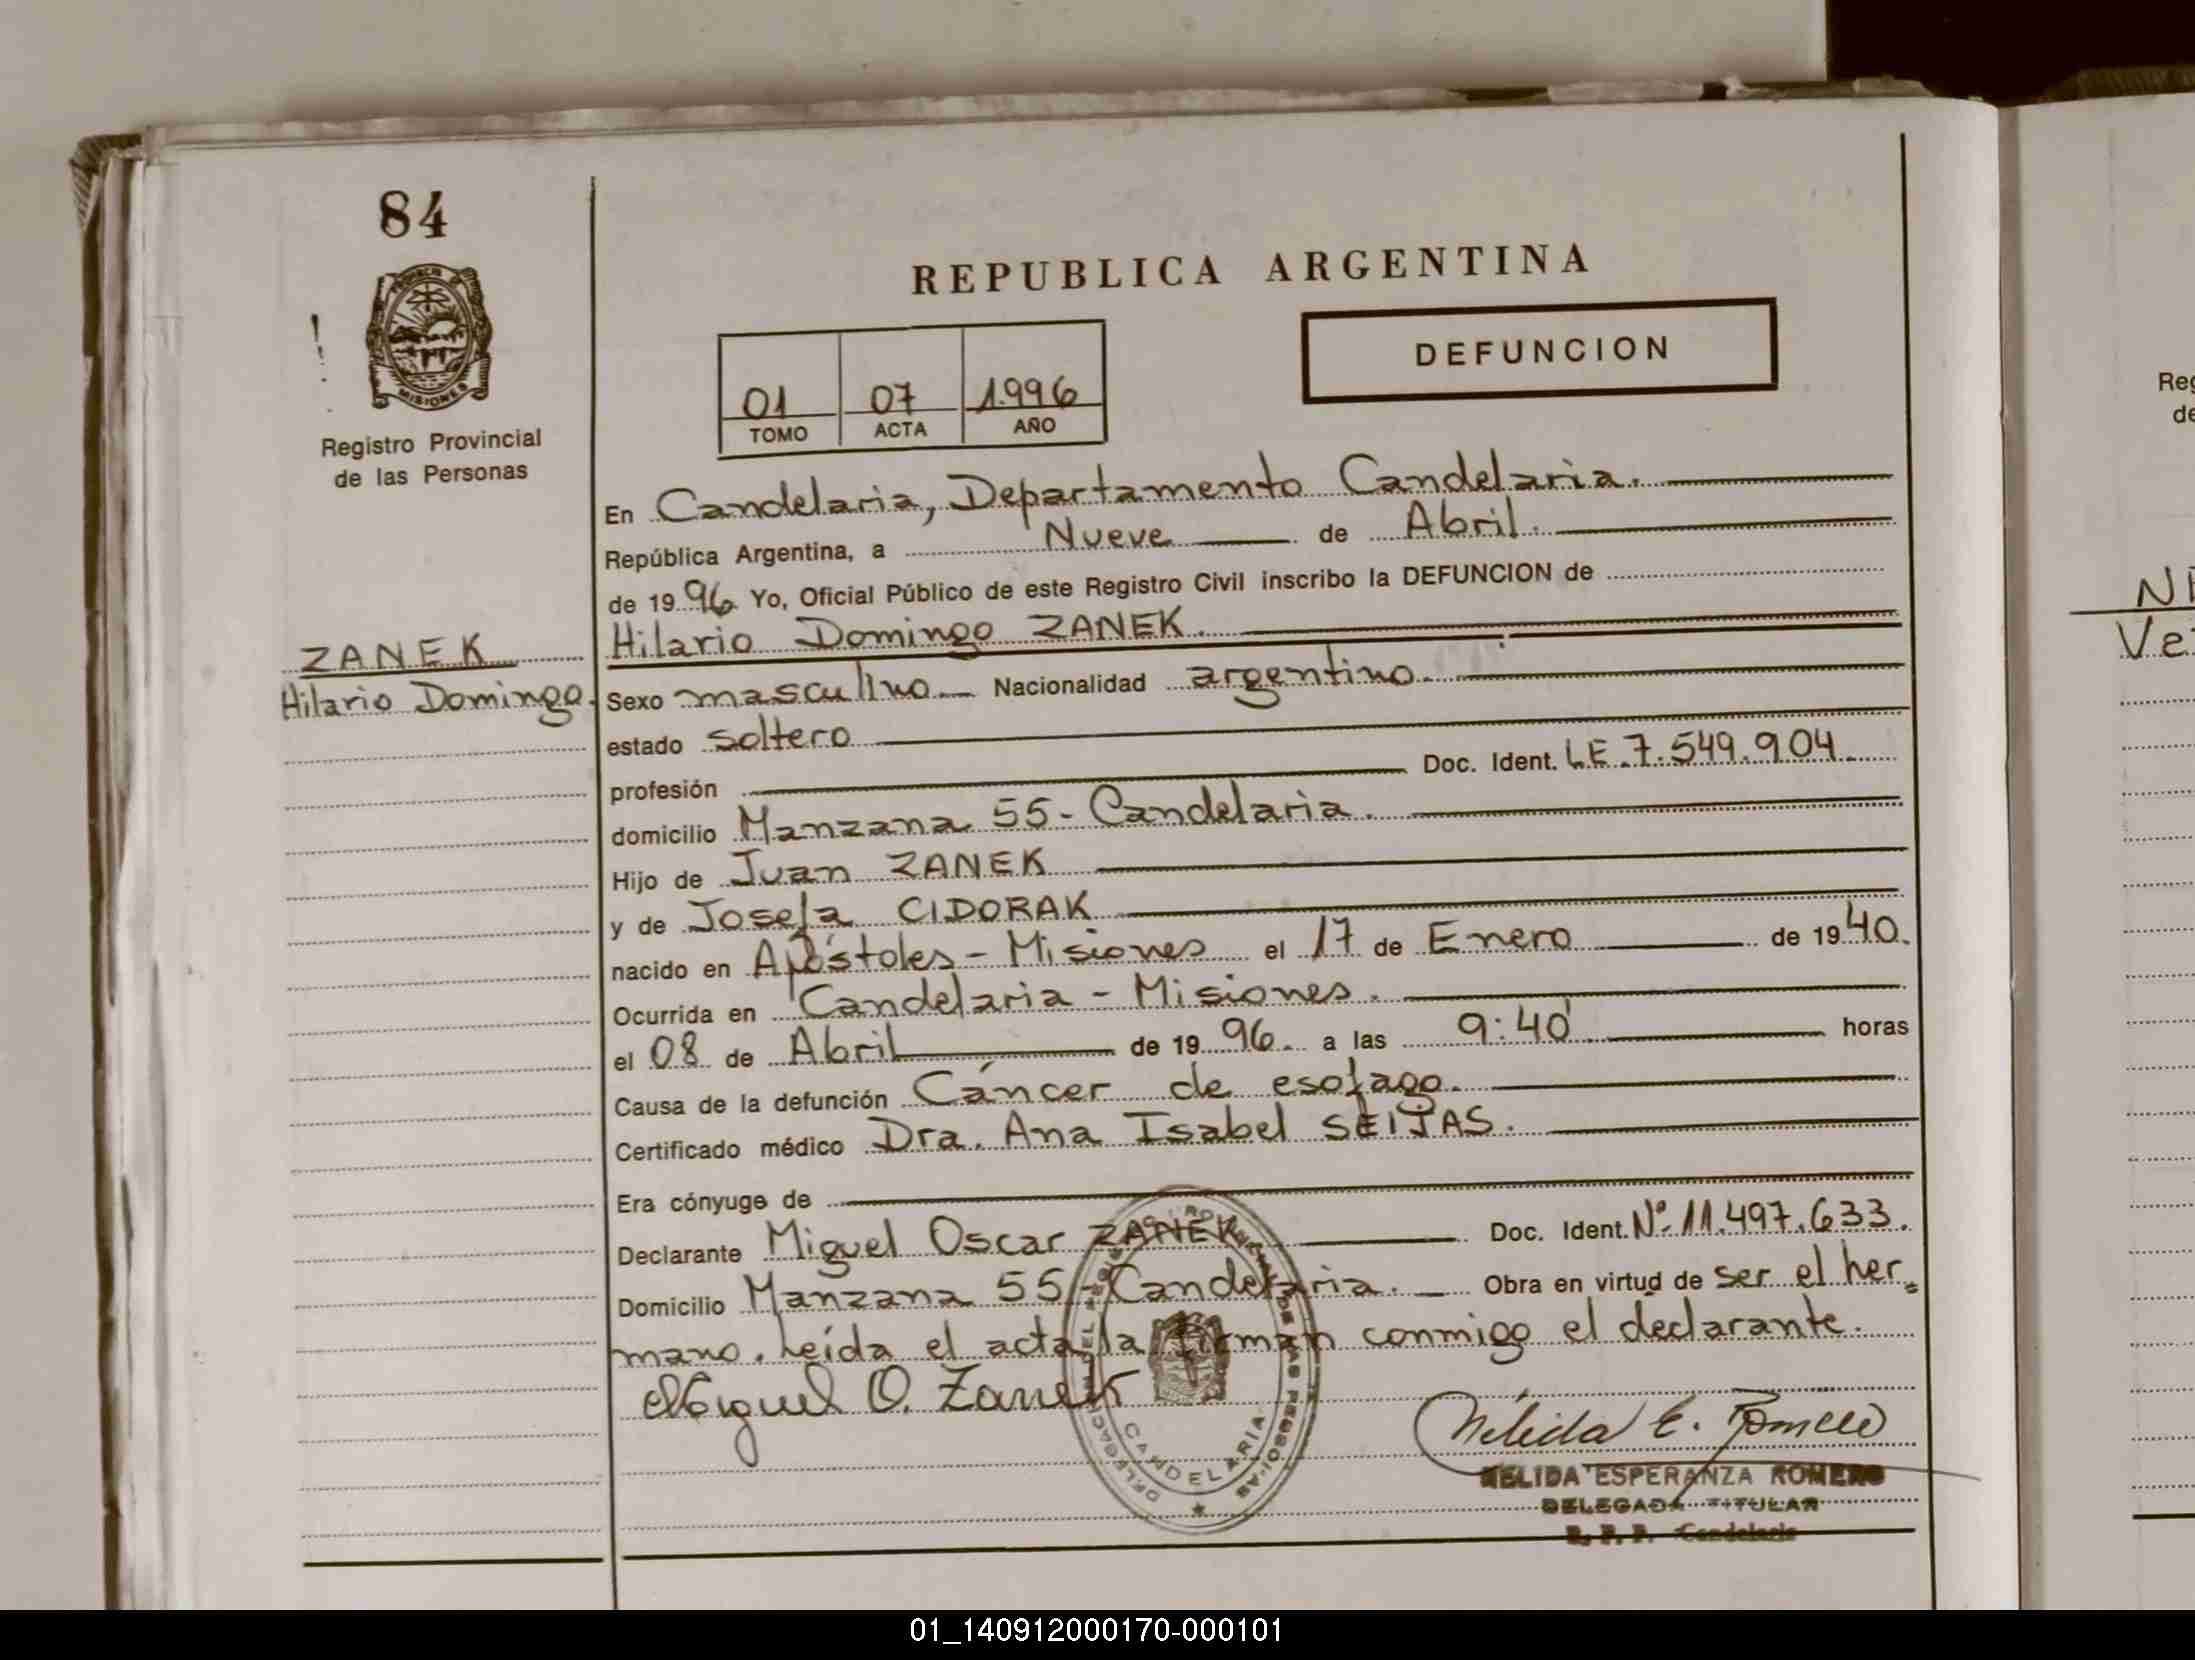 84
PROVINCIA
MISIONES
Registro Provincial
de las Personas
ZANEK
Hilario Domingo.
REPUBLICA ARGENTINA
DEFUNCION
01 07 1.996
TOMO ACTA AÑO
En Candelaria, Departamento Candelaria.
República Argentina, a Nueve de Abril.
de 1996. Yo, Oficial Público de este Registro Civil inscribo la DEFUNCION de
Hilario Domingo ZANEK.
Sexo masculino. Nacionalidad argentino.
estado soltero
profesión Doc. Ident. L.E. 7.549.904.
domicilio Manzana 55 - Candelaria.
Hijo de Juan ZANEK
y de Josefa CIDORAK
nacido en Apóstoles - Misiones el 17 de Enero de 1940.
Ocurrida en Candelaria - Misiones.
el 08 de Abril de 1996. a las 9:40' horas
Causa de la defunción Cáncer de esofago.
Certificado médico Dra. Ana Isabel SEIJAS.
Era cónyuge de
Declarante Miguel Oscar ZANEK Doc. Ident. Nº 11.497.633.
Domicilio Manzana 55 - Candelaria. Obra en virtud de ser el her-
mano. Leída el acta la firman conmigo el declarante.
Miguel O. Zanek
CANDELARIA
Nélida E. Romero
NELIDA ESPERANZA ROMERO
DELEGADA TITULAR
R. P. P. Candelaria
Reg
de
Ve
01_140912000170-000101